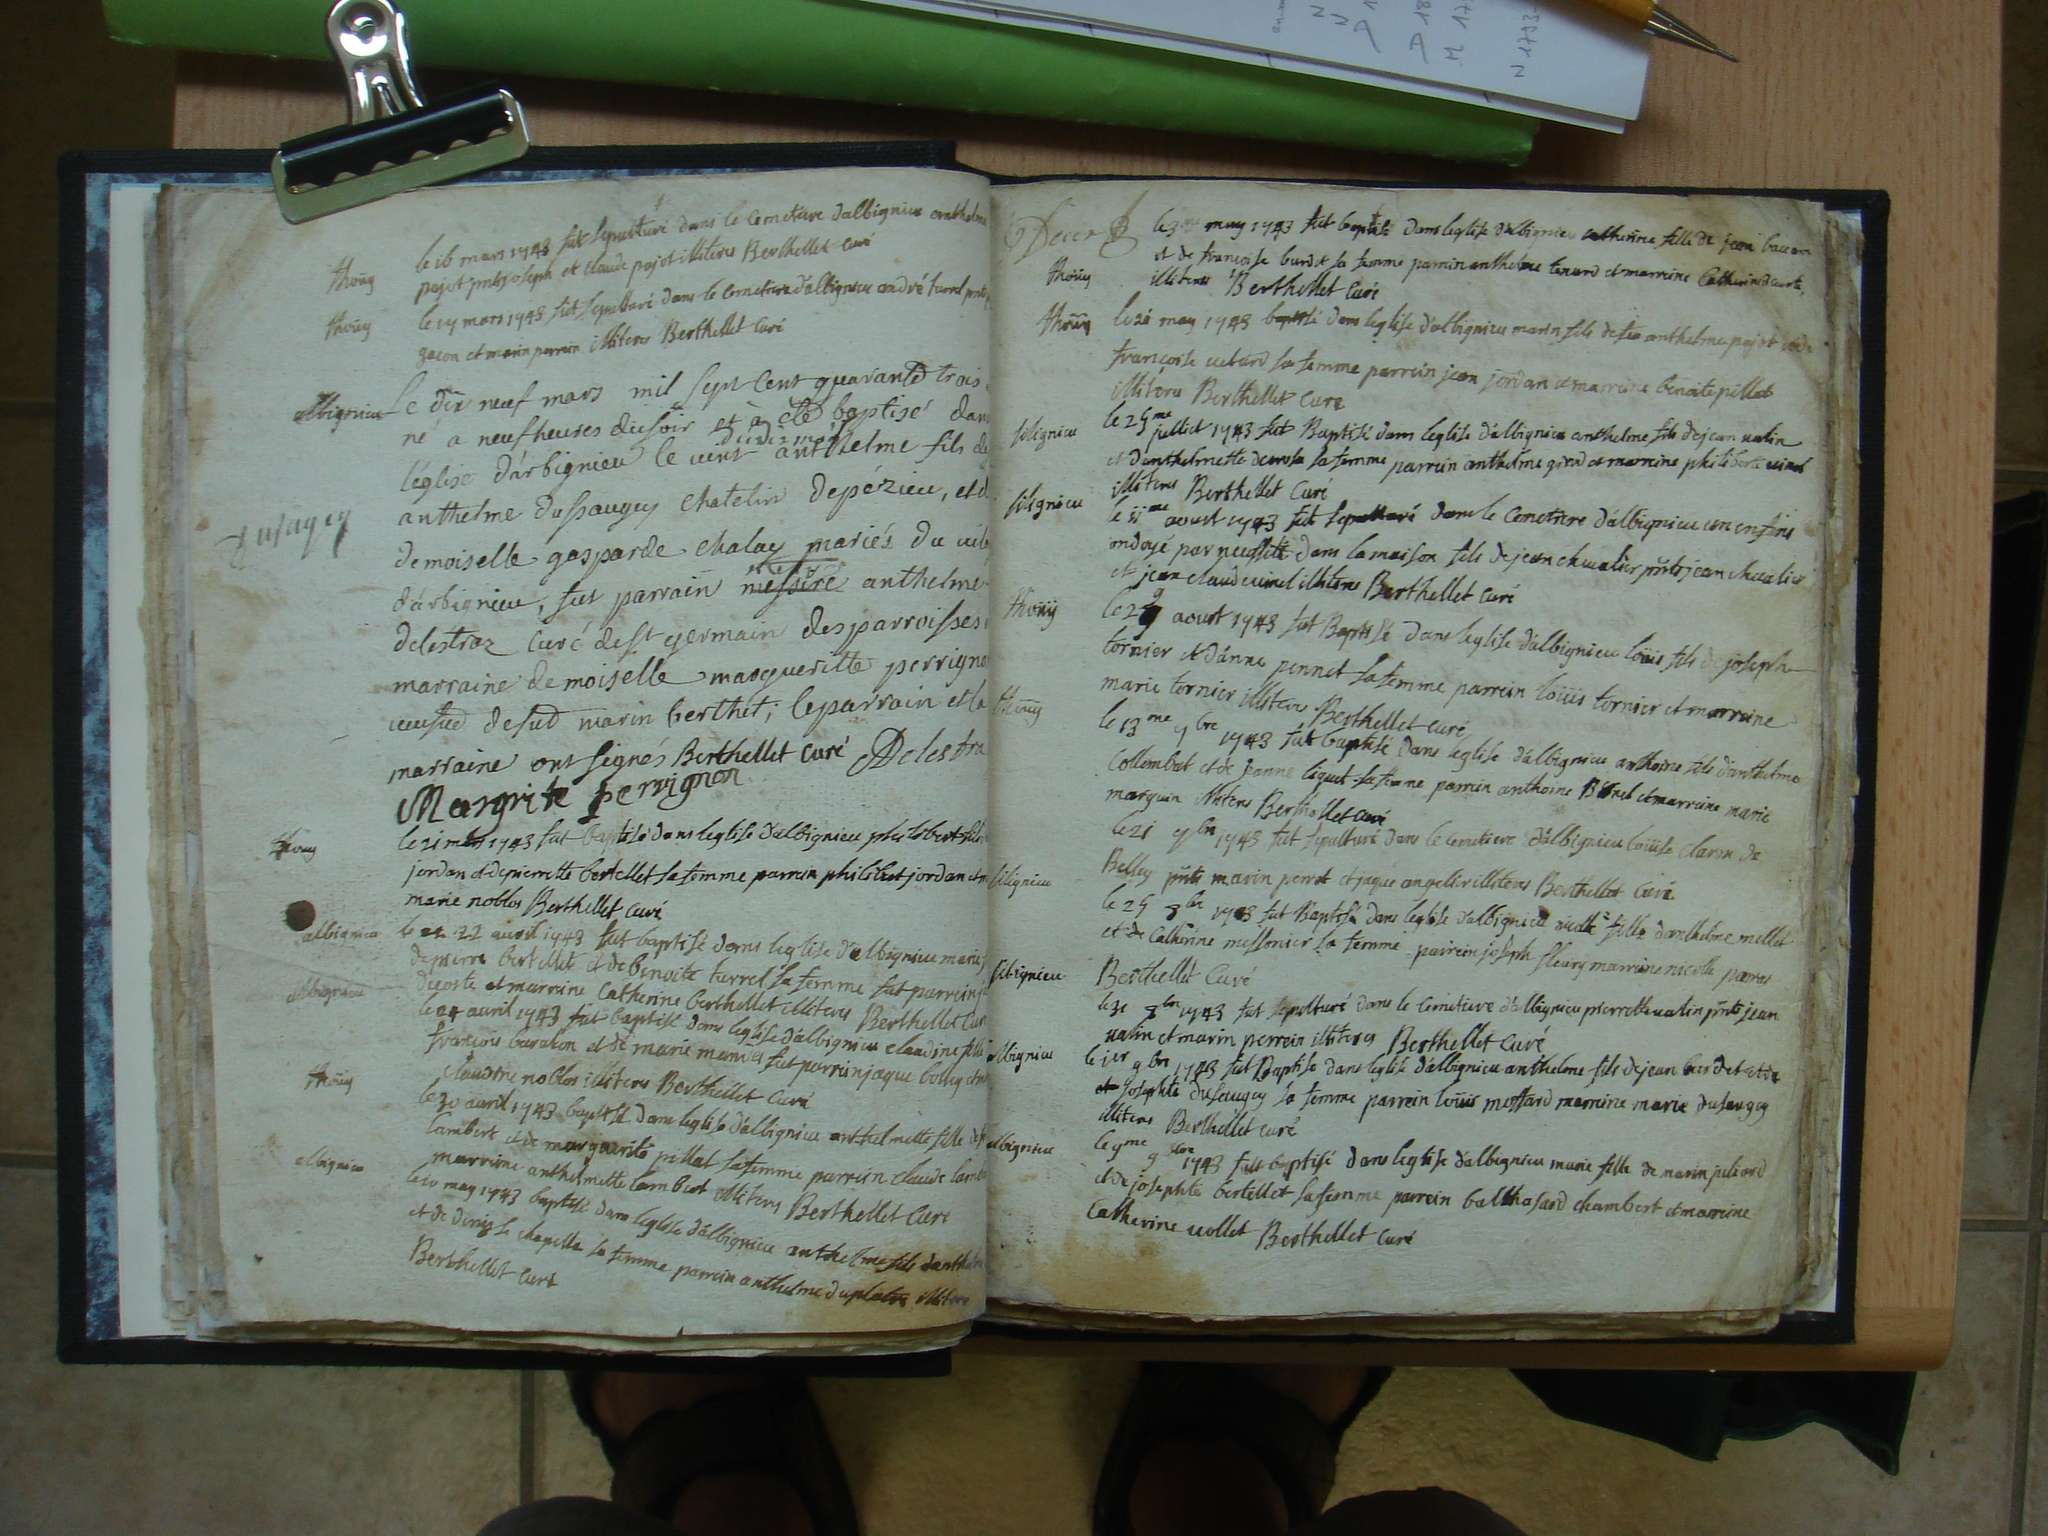 thoüy
le 16 mars 1743 fut sepulturé dans le cemetiere d'albignieu anthelme
pajot pnts joseph et claude pajot illiteres Berthellet curé
thoüy
le 17 mars 1743 fut sepulturé dans le cemetiere d'albignieu andré
et marin perrein illiteres Berthellet Curé
albignieu
Le dix neuf mars mil sept cent quarante trois
né a neuf heures du soir et à eté baptisé dans
l'église d'arbignieu le vint du dit mois anthelme fils de
dusaugey
anthelme dusaugey chatelin de pézieu, et de
demoiselle gasparde chalay mariés du
d'arbignieu, fut parrain messire anthelme
delestraz curé de st germain des parroisses
marraine demoiselle margueritte perrignon
de marin berthet; le parrain et la
marraine ont signés Berthellet Curé Delestra
Margrite perrignon
thoüy
le 21 mars 1743 fut baptisé dans l'eglise d'albignieu philibert fils
jordan et de pierrette bertellet sa femme parrein philibert jordan et
marie noblos Berthellet Curé
albignieu
le 22 avril 1743 fut baptisé dans l'eglise d'albignieu
de pierre bertellet et de benoite turrel sa femme fut parrein
decoste et marrine Catherine berthellet illiteres Berthellet Curé
albignieu
le 24 avril 1743 fut baptisé dans l'eglise d'albignieu claudine fille
françois et de marie sa femme fut parrein jaque bouy et
claudine noblos illiteres Berthellet Curé
thoüy
le 30 avril 1743 baptisé dans l'eglise d'albignieu anthelmette fille de
lambert et de marguerite pillat sa femme parrein claude lambert
marrine anthelmette lambert illiteres Berthellet Curé
albignieu
le 10 may 1743 baptisé dans l'eglise d'albignieu anthelme fils d'anthelme
et de denise chapelle sa femme parrein anthelme duplatre illiteres
Berthellet Curé
le 3me may 1743 fut baptisé dans l'eglise d'albignieu catherine fille de jean
thoüy
et de françoise burdet sa femme parrein anthelme tenard et marreine Catherine
illiteres Berthellet Curé
thoüy
le 21 may 1743 baptisé dans l'eglise d'albignieu marin fils de feu anthelme pajot et de
françoise sa femme parrein jean jordan et marreine benoite pillat
illiteres Berthellet Curé
silignieu
le 25me juillet 1743 fut Baptisé dans l'eglise d'albignieu anthelme fils de jean vatin
et d'anthelmette sa femme parrein anthelme et marreine philiberte
illiteres Berthellet Curé
silignieu
le 11me aoust 1743 fut sepulturé dans le cemetiere d'albignieu un enfans
ondoyé par necessité dans la maison fils de jean chevalier pnts jean chevalier
et jean claude illiteres Berthellet Curé
thoüy
le 29 aoust 1743 fut Baptisé dans l'eglise d'albignieu loüis fils de joseph
tornier et d'anne pennet sa femme parrein loüis tornier et marreine
marie tornier illiteres Berthellet Curé
thoüy
le 13me 9bre 1743 fut baptisé dans l'eglise d'albignieu anthoine fils d'anthelme
Collombet et de Jeanne liquet sa femme parrein anthoine et marreine marie
marguin illiteres Berthellet Curé
le 21 1743 fut sepulturé dans le cemetiere d'albignieu loüise de
silignieu
Belley pnts marin perrot et jaque illiteres Berthellet Curé
le 25 8bre 1743 fut Baptisé dans l'eglise d'albignieu fille d'anthelme mellet
et de Catherine messonier sa femme parrein joseph fleury marrine nicolle
silignieu
Berthellet Curé
le 31 8bre 1743 fut sepulturé dans le cemetiere d'albignieu pierrette vatin pnts jean
vatin et marin perrein illiteres Berthellet Curé
albignieu
le 1er 9bre 1743 fut Baptisé dans l'eglise d'albignieu anthelme fils de jean burdet et de
josephte dusaugey sa femme parrein loüis mossard marreine marie dusaugey
illiteres Berthellet Curé
albignieu
le 9me 9bre 1743 fut baptisé dans l'eglise d'albignieu marie fille de marin juliard
et de josephte bertellet sa femme parrein balthasard chambert et marreine
Catherine vollet Berthellet Curé